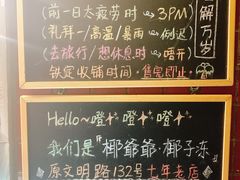 (前一日太疲劳时⇝3PM)
(礼拜一/高温/暴雨⇝倒迟)
(去旅行/想休息时⇝唔开)
铁定收铺时间·售完即止
解万岁
Hello~噔噔噔
我们是"椰爺爺·椰子冻
原文明路132号十年老店